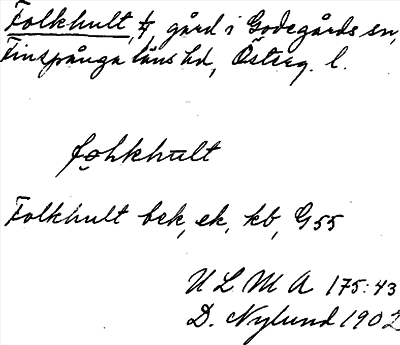 Folkhult, 1/4, gård i Godegårds sn,
Finspånga läns hd, Österg. l.
fo̯hkhu̅lt
Folkhult bek, ek, kb, G 55
U L M A 175:43
D. Nylund 1902